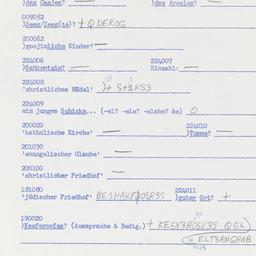 )das Gaajes? — )das Aroeles? —
009032
)Sees/Zees(te)? + QDEROG
200062
)goojinliche Kinder? —
224006 224007
)Schkootzim? — Einzahl: —
224008
'christliches Mädel' )+ S+1KS3
224009
ein junges Schicks... (-el? -ele? -elche? &c) O
200020 224010
'katholische Kirche' — )Tumme? —
201030
'evangelischer Glaube' —
200100
'christlicher Friedhof' —
181080 224011
'jüdischer Friedhof' )guter Ort? +
190020
)Keeferoofes? (Aussprache & Bedtg.) + KE5V3ROSV3S QGL)
(+ ELT3RNGRAB